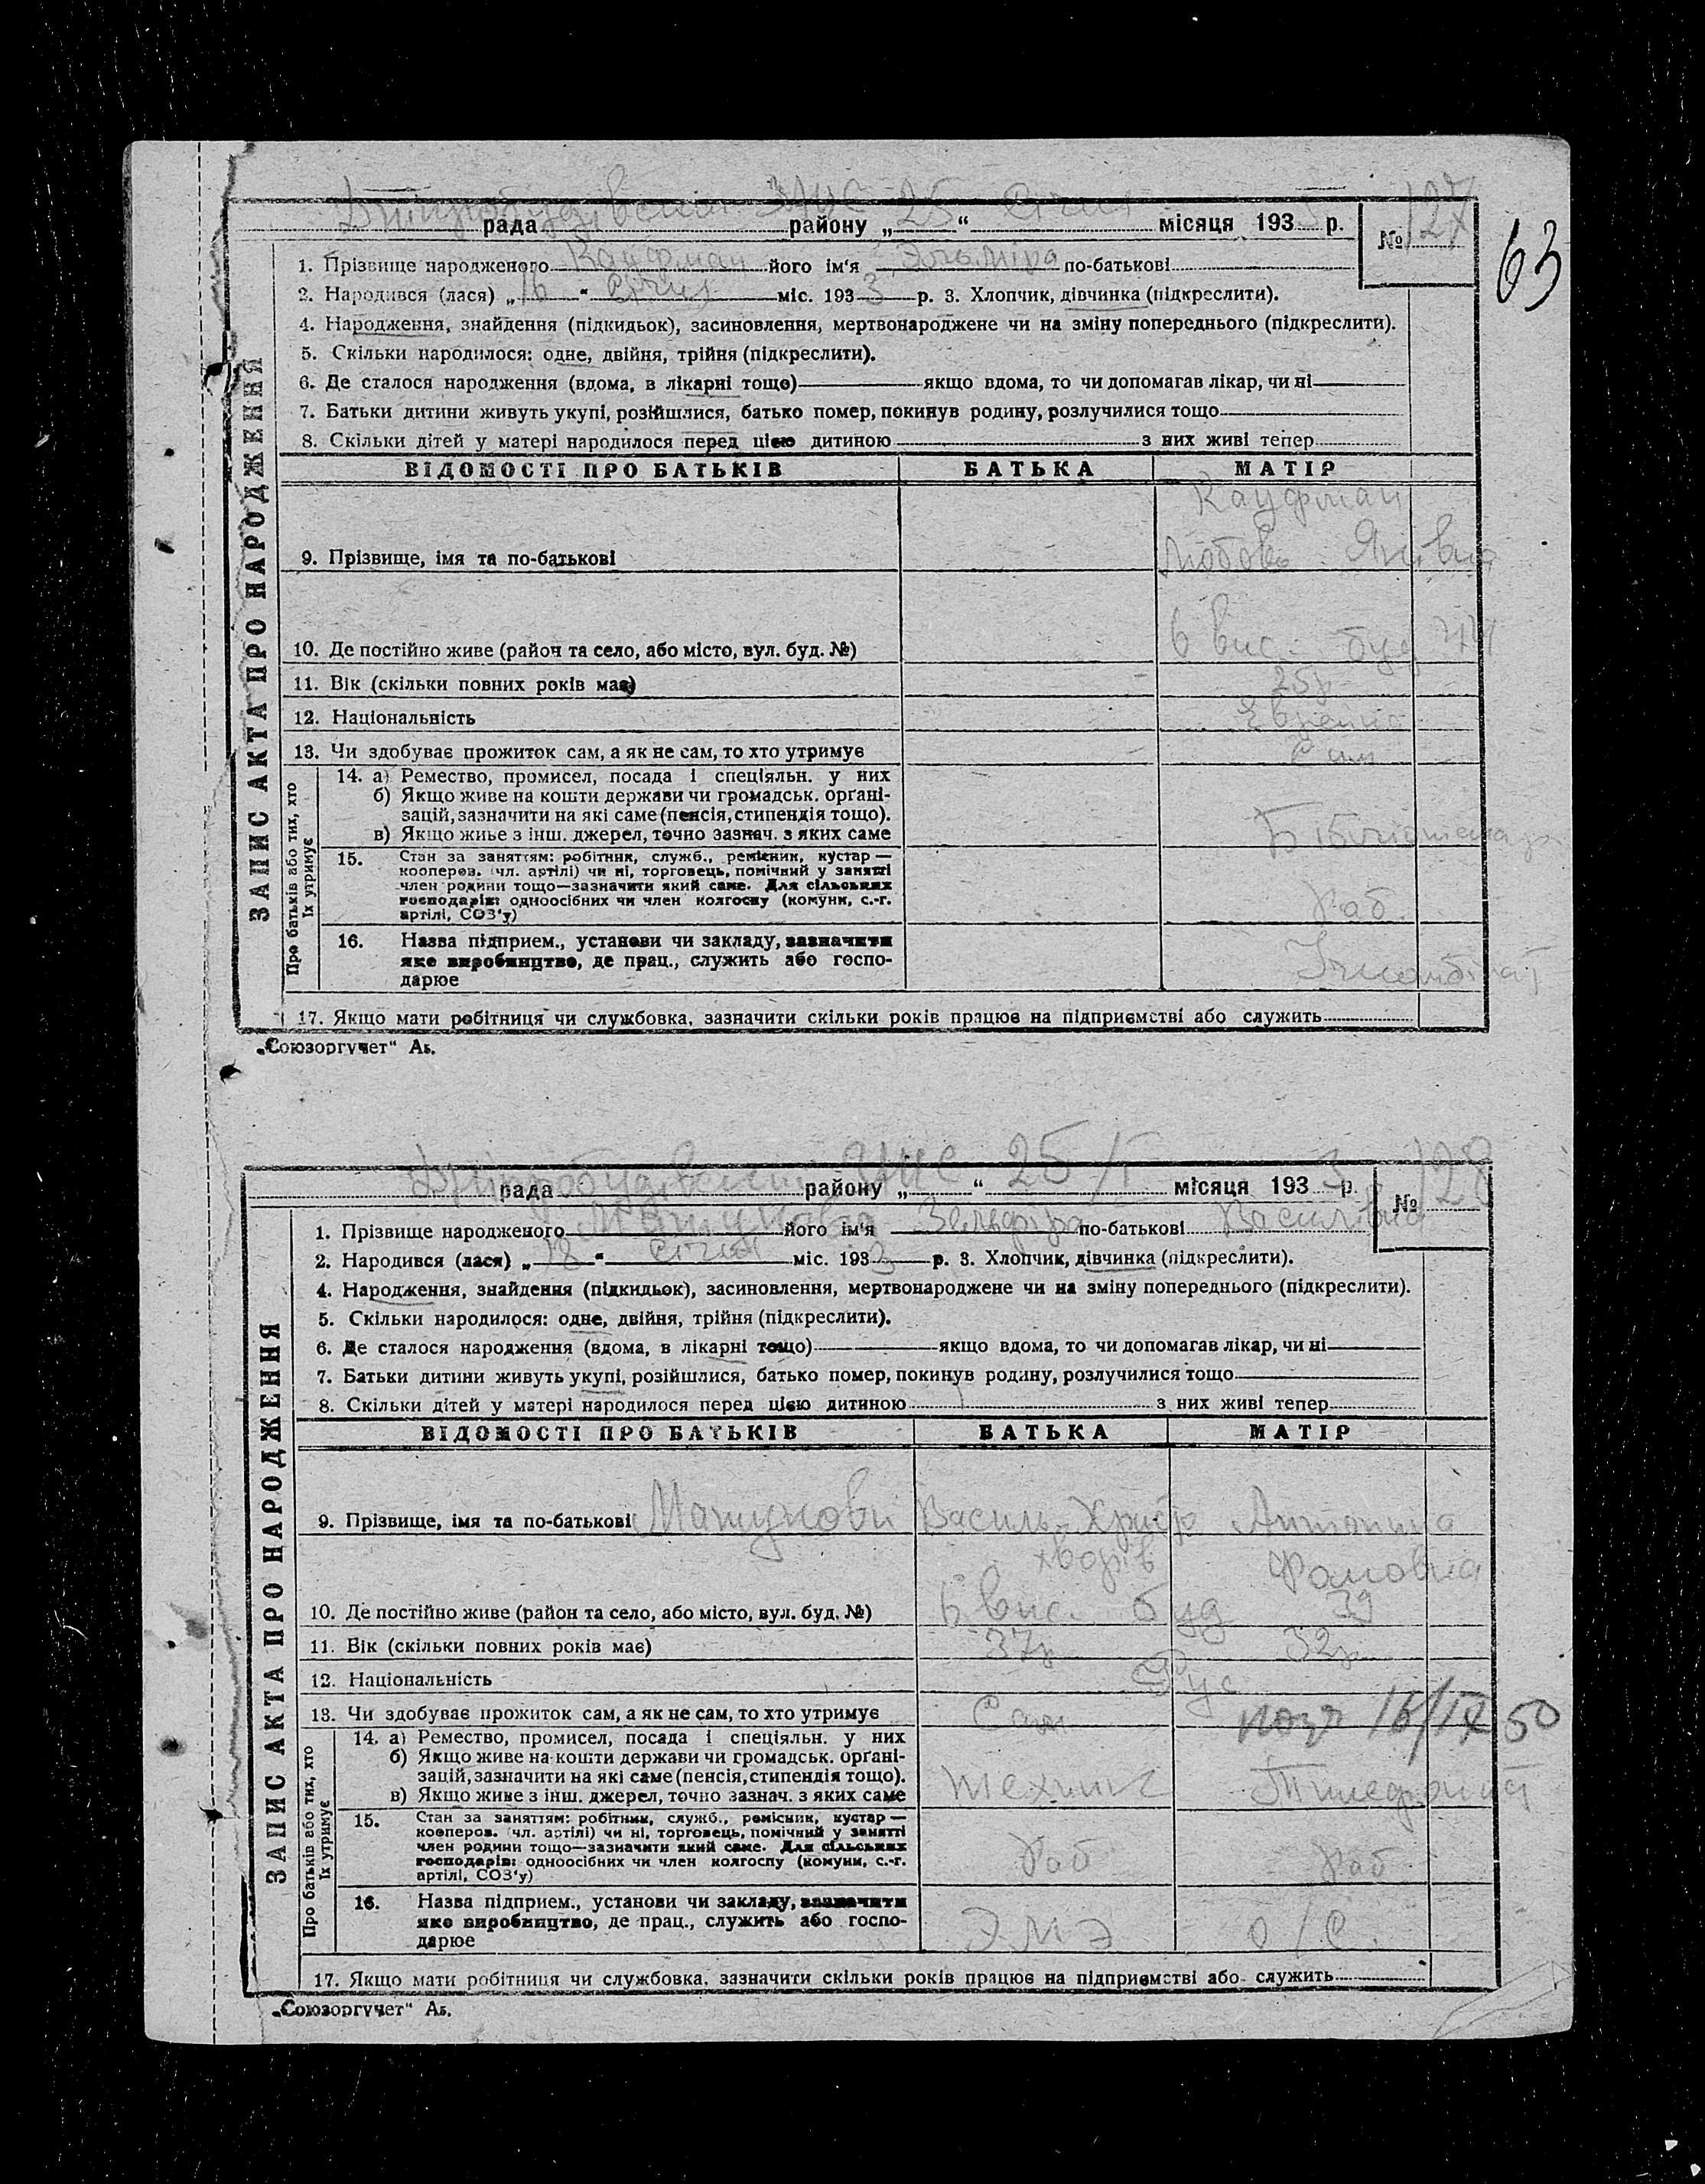 63
ЗАПИС АКТА ПРО НАРОДЖЕННЯ
ЗАГС 25 Січня
рада району „ “ місяця 193 р. № 127
1. Прізвище народженого Кауфман його ім‘я Эльміра по-батькові
2. Народився (лася) „16“ Січня міс. 1933 р. 3. Хлопчик, дівчинка (підкреслити).
4. Народження, знайдення (підкидьок), засиновлення, мертвонароджене чи на зміну попереднього (підкреслити).
5. Скільки народилося: одне, двійня, трійня (підкреслити).
6. Де сталося народження (вдома, в лікарні тощо) якщо вдома, то чи допомагав лікар, чи ні
7. Батьки дитини живуть укупі, розійшлися, батько помер, покинув родину, розлучилися тощо
8. Скільки дітей у матері народилося перед цією дитиною з них живі тепер
ВІДОМОСТІ ПРО БАТЬКІВ БАТЬКА МАТІР
Кауфман
9. Прізвище, імя та по-батькові Любовь
10. Де постійно живе (район та село, або місто, вул. буд. №) 6 вис. буд
11. Вік (скільки повних років має) 25р
12. Національність
13. Чи здобуває прожиток сам, а як не сам, то хто утримує Сам
Про батьків або тих, хто їх утримує
14. а) Ремество, промисел, посада і спеціяльн. у них
б) Якщо живе на кошти держави чи громадськ. організацій, зазначити на які саме (пенсія, стипендія тощо).
в) Якщо живе з інш. джерел, точно зазнач. з яких саме
15. Стан за заняттям: робітник, служб., ремісник, кустар —
кооперов. (чл. артілі) чи ні, торговець, помічний у занятті
член родини тощо—зазначити який саме. Для сільських
господарів: одноосібних чи член колгоспу (комуни, с.-г.
артілі, СОЗ‘у) Раб.
16. Назва підприєм., установи чи закладу, зазначити
яке виробництво, де прац., служить або госпо-
дарює
17. Якщо мати робітниця чи службовка, зазначити скільки років працює на підприємстві або служить
„Союзоргучет“ Аз.
ЗАПИС АКТА ПРО НАРОДЖЕННЯ
ЗАГС 25/I
рада району „ “ місяця 1933 р. № 128
1. Прізвище народженого його ім‘я Земфіра по-батькові Василівна
2. Народився (лася) „18“ Січня міс. 1933 р. 3. Хлопчик, дівчинка (підкреслити).
4. Народження, знайдення (підкидьок), засиновлення, мертвонароджене чи на зміну попереднього (підкреслити).
5. Скільки народилося: одне, двійня, трійня (підкреслити).
6. Де сталося народження (вдома, в лікарні тощо) якщо вдома, то чи допомагав лікар, чи ні
7. Батьки дитини живуть укупі, розійшлися, батько помер, покинув родину, розлучилися тощо
8. Скільки дітей у матері народилося перед цією дитиною з них живі тепер
ВІДОМОСТІ ПРО БАТЬКІВ БАТЬКА МАТІР
9. Прізвище, імя та по-батькові Василь Антонина
10. Де постійно живе (район та село, або місто, вул. буд. №) 6 вис. буд 39
11. Вік (скільки повних років має) 37р 32р
12. Національність Рус
13. Чи здобуває прожиток сам, а як не сам, то хто утримує Сам
Про батьків або тих, хто їх утримує
14. а) Ремество, промисел, посада і спеціяльн. у них
б) Якщо живе на кошти держави чи громадськ. організацій, зазначити на які саме (пенсія, стипендія тощо).
в) Якщо живе з інш. джерел, точно зазнач. з яких саме технік
15. Стан за заняттям: робітник, служб., ремісник, кустар —
кооперов. (чл. артілі) чи ні, торговець, помічний у занятті
член родини тощо—зазначити який саме. Для сільських
господарів: одноосібних чи член колгоспу (комуни, с.-г.
артілі, СОЗ‘у) Раб Раб
16. Назва підприєм., установи чи закладу, зазначити
яке виробництво, де прац., служить або госпо-
дарює ЭМЭ О/С.
17. Якщо мати робітниця чи службовка, зазначити скільки років працює на підприємстві або служить
„Союзоргучет“ Аз.